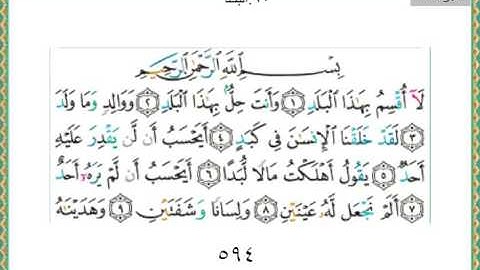 بِسْمِ ٱللَّهِ ٱلرَّحْمَٰنِ ٱلرَّحِيمِ
لَآ أُقْسِمُ بِهَٰذَا ٱلْبَلَدِ ١ وَأَنتَ حِلٌّۢ بِهَٰذَا ٱلْبَلَدِ ٢ وَوَالِدٍ وَمَا وَلَدَ
٣ لَقَدْ خَلَقْنَا ٱلْإِنسَٰنَ فِى كَبَدٍ ٤ أَيَحْسَبُ أَن لَّن يَقْدِرَ عَلَيْهِ
أَحَدٌ ٥ يَقُولُ أَهْلَكْتُ مَالًا لُّبَدًا ٦ أَيَحْسَبُ أَن لَّمْ يَرَهُۥٓ أَحَدٌ
٧ أَلَمْ نَجْعَل لَّهُۥ عَيْنَيْنِ ٨ وَلِسَانًا وَشَفَتَيْنِ ٩ وَهَدَيْنَٰهُ
٥٩٤